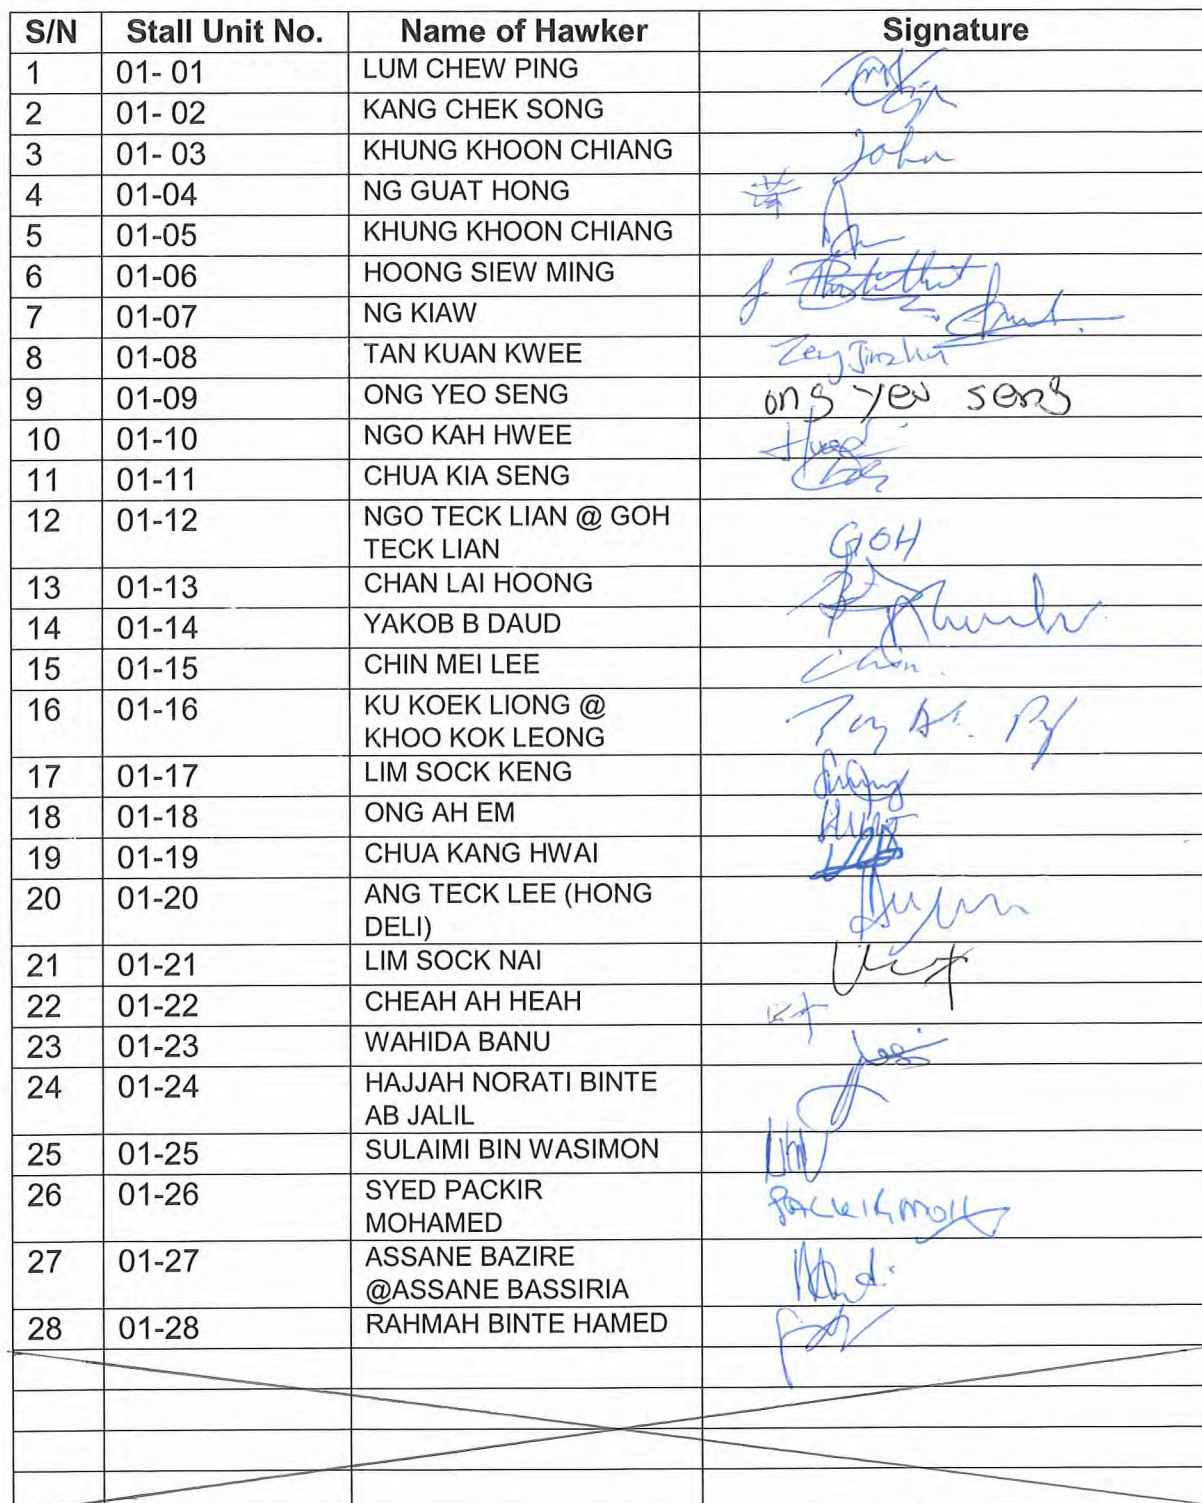 S/N Stall Unit No. Name of Hawker Signature
1 01- 01 LUM CHEW PING
2 01- 02 KANG CHEK SONG
3 01- 03 KHUNG KHOON CHIANG John
4 01-04 NG GUAT HONG
5 01-05 KHUNG KHOON CHIANG
6 01-06 HOONG SIEW MING
7 01-07 NG KIAW
8 01-08 TAN KUAN KWEE
9 01-09 ONG YEO SENG ong yeo seng
10 01-10 NGO KAH HWEE
11 01-11 CHUA KIA SENG
12 01-12 NGO TECK LIAN @ GOH
TECK LIAN GOH
13 01-13 CHAN LAI HOONG
14 01-14 YAKOB B DAUD
15 01-15 CHIN MEI LEE
16 01-16 KU KOEK LIONG @
KHOO KOK LEONG
17 01-17 LIM SOCK KENG
18 01-18 ONG AH EM
19 01-19 CHUA KANG HWAI
20 01-20 ANG TECK LEE (HONG
DELI)
21 01-21 LIM SOCK NAI
22 01-22 CHEAH AH HEAH
23 01-23 WAHIDA BANU
24 01-24 HAJJAH NORATI BINTE
AB JALIL
25 01-25 SULAIMI BIN WASIMON
26 01-26 SYED PACKIR
MOHAMED
27 01-27 ASSANE BAZIRE
@ASSANE BASSIRIA
28 01-28 RAHMAH BINTE HAMED